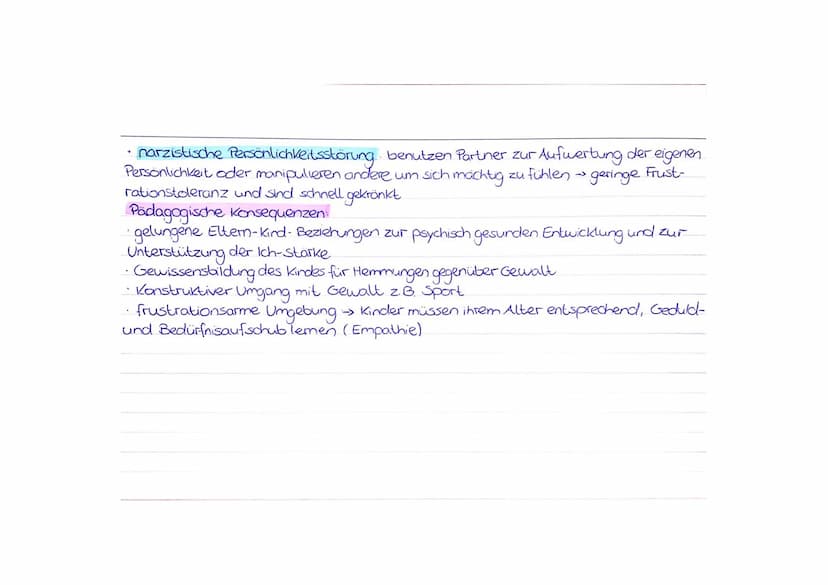 · narzistische Persönlichkeitsstörung: benutzen Partner zur Aufwertung der eigenen
Persönlichkeit oder manipulieren andere um sich mächtig zu fühlen → geringe Frust-
rationstoleranz und sind schnell gekränkt
Pädagogische Konsequenzen:
· gelungene Eltern-Kind-Beziehungen zur psychisch gesunden Entwicklung und zur
Unterstützung der Ich-Stärke
· Gewissensbildung des Kindes für Hemmungen gegenüber Gewalt
· Konstruktiver Umgang mit Gewalt z.B. Sport
· frustrationsarme Umgebung → Kinder müssen ihrem Alter entsprechend, Geduld-
und Bedürfnisaufschub lernen (Empathie)